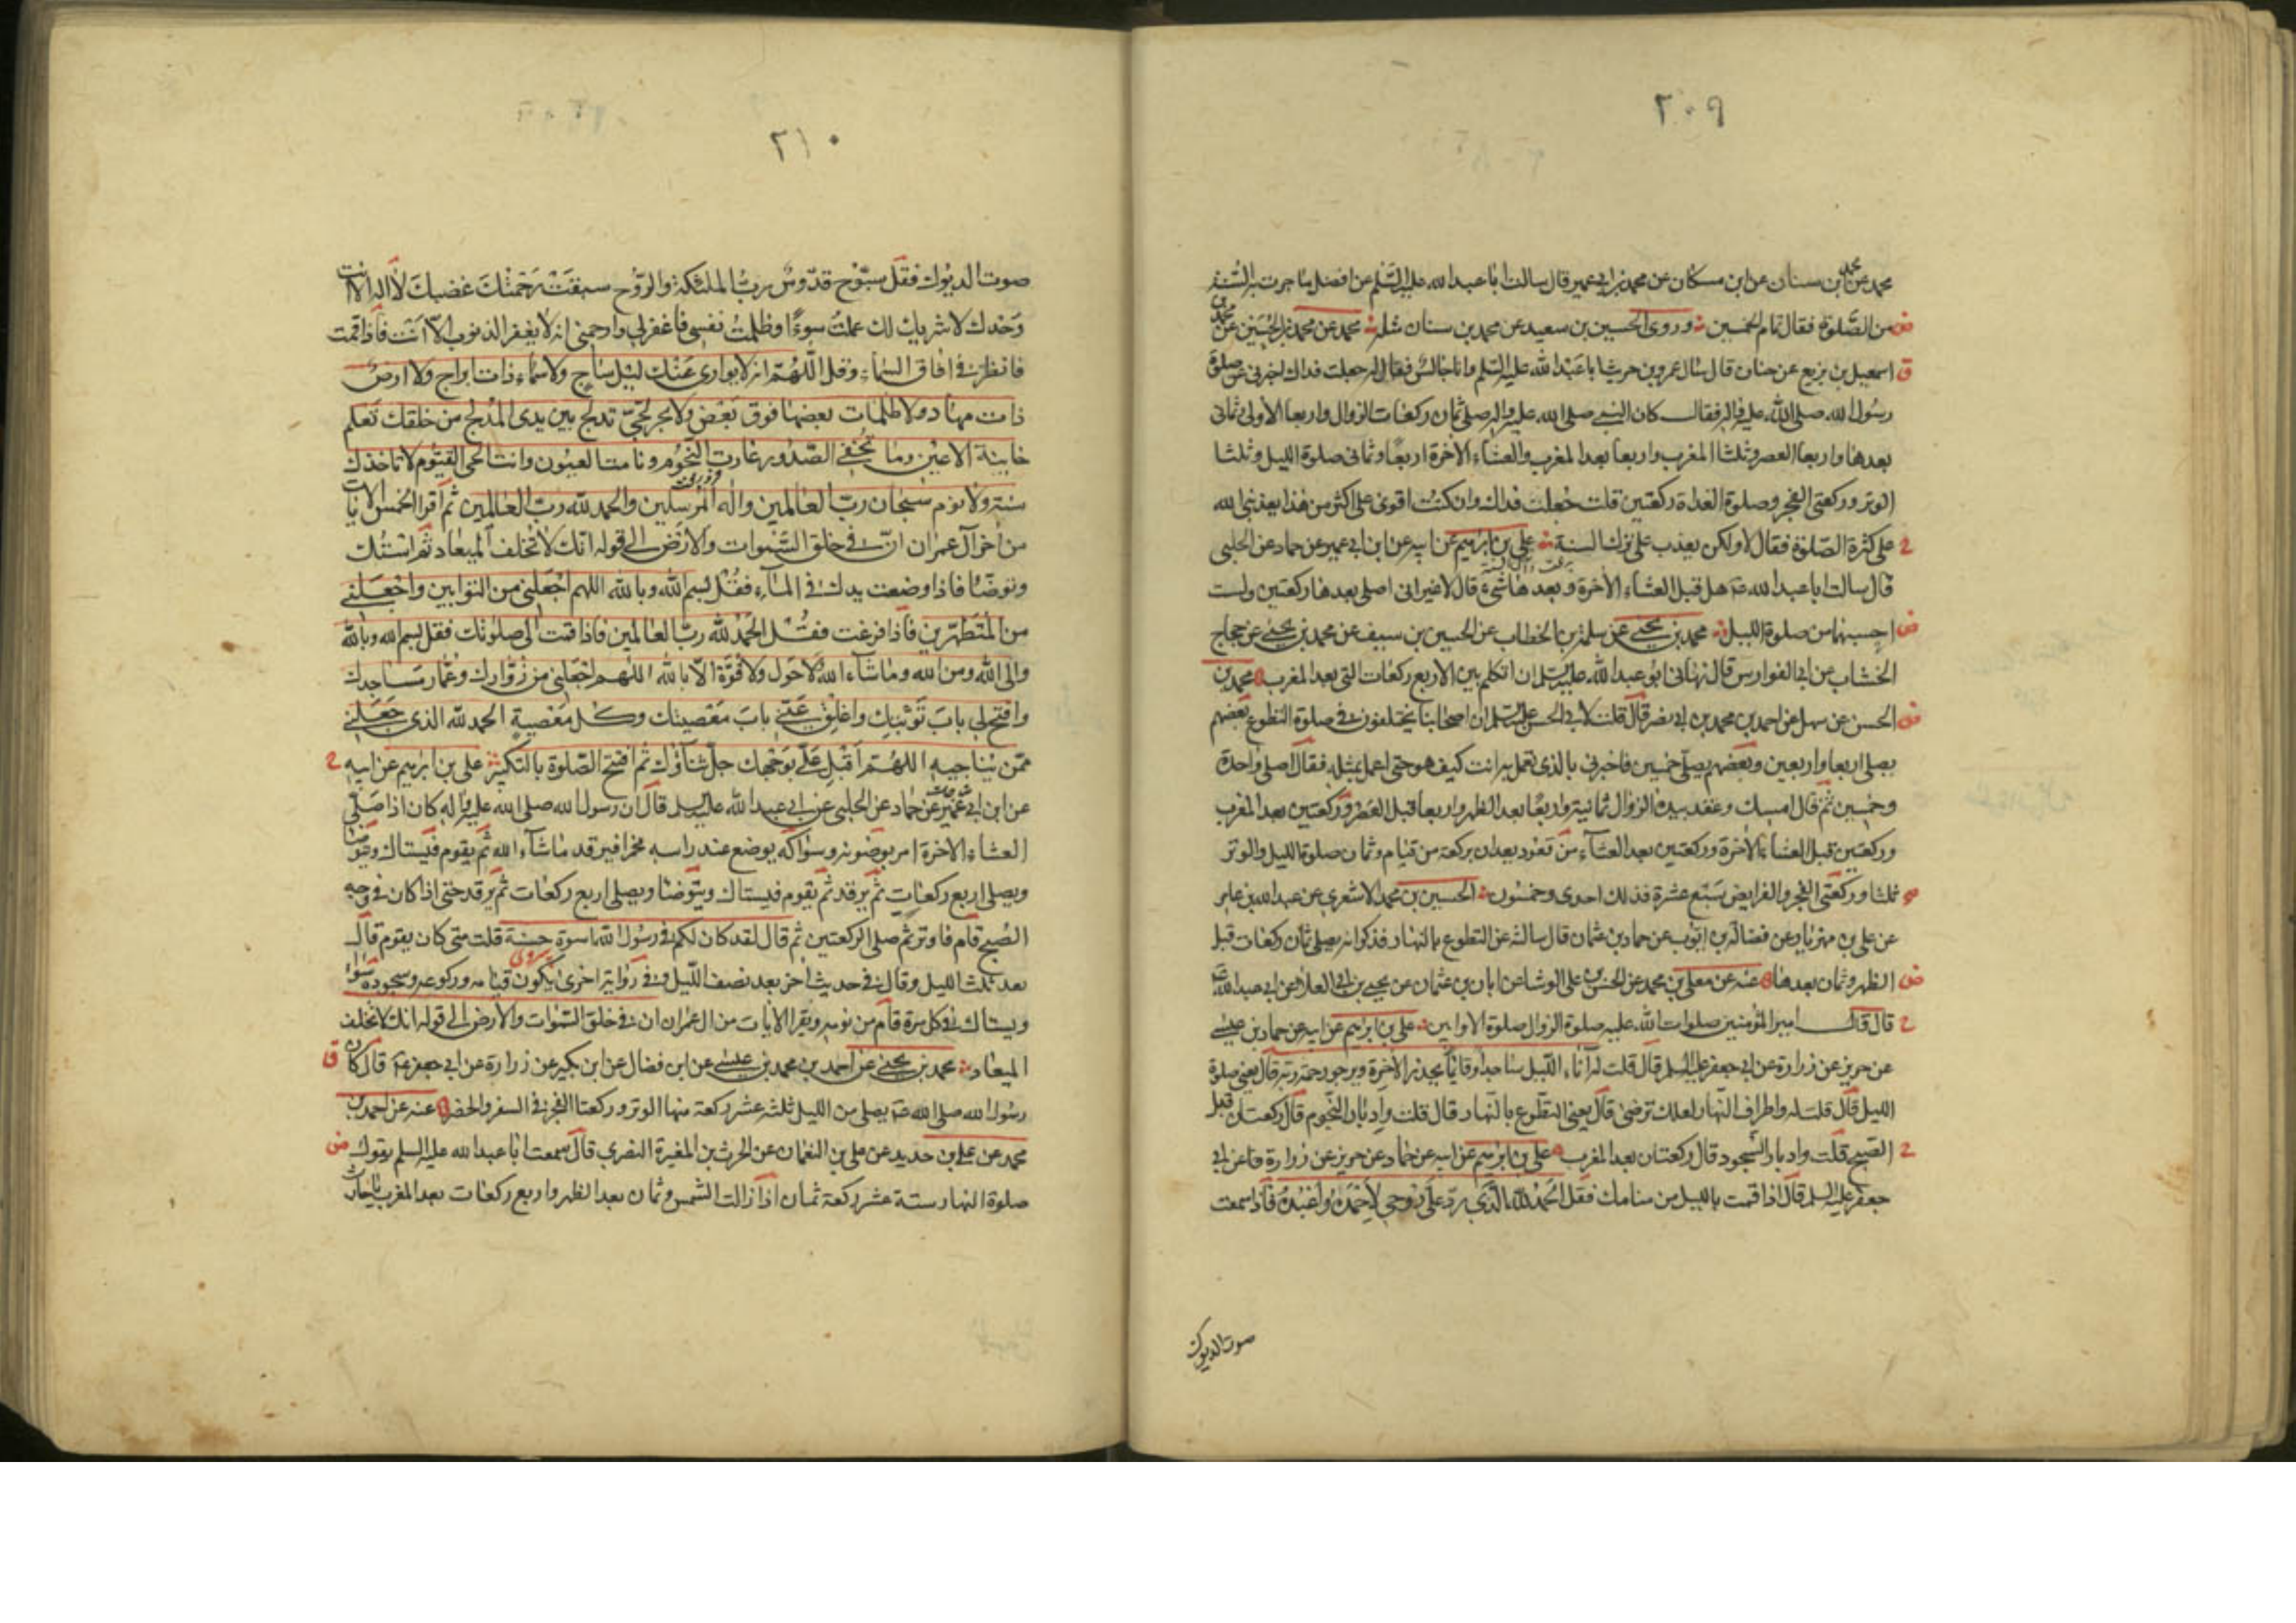 ٢٠٩
محمد عن ابن سنان عن ابن مسكان عن محمد بن ابى عمير قال سالت ابا عبد الله عليه السلم عن افضل ما جرت به السنة
من الصلوة فقال تمام الخمسين وروى الحسين بن سعيد عن محمد بن سنان مثله محمد عن محمد بن الحسين عن محمد بن
اسمعيل بن بزيع عن حنان قال سال عمرو بن حريث ابا عبد الله عليه السلم وانا جالس فقال له جعلت فداك اخبرنى عن صلوة
رسول الله صلى الله عليه واله فقال كان النبى صلى الله عليه واله يصلى ثمان ركعات الزوال واربعا الاولى وثمانى
بعدها واربعا العصر وثلثا المغرب واربعا بعد المغرب والعشاء الاخرة اربعا وثمانى صلوة الليل وثلثا
الوتر وركعتى الفجر وصلوة الغداة ركعتين قلت جعلت فداك وان كنت اقوى على اكثر من هذا يعذبنى الله
على كثرة الصلوة فقال لا ولكن يعذب على ترك السنة على بن ابرهيم عن ابيه عن ابن ابى عمير عن حماد عن الحلبى
قال سالت ابا عبد الله ع هل قبل العشاء الاخرة وبعدها شىء قال لا غير انى اصلى بعدها ركعتين ولست
احسبهما من صلوة الليل محمد بن يحيى عن سلمة بن الخطاب عن الحسين بن سيف عن محمد بن يحيى عن حجاج
الخشاب عن ابى الفوارس قال نهانى ابو عبد الله عليه السلم ان اتكلم بين الاربع ركعات التى بعد المغرب محمد بن
الحسن عن سهل عن احمد بن محمد بن ابى نصر قال قلت لابى الحسن عليه السلم ان اصحابنا يختلفون فى صلوة التطوع بعضهم
يصلى اربعا واربعين وبعضهم يصلى خمسين فاخبرنى بالذى تعمل به انت كيف هو حتى اعمل بمثله فقال اصلى واحدة
وخمسين ثم قال امسك وعقد بيده الزوال ثمانية واربعا بعد الظهر واربعا قبل العصر وركعتين بعد المغرب
وركعتين قبل العشاء الاخرة وركعتين بعد العشاء من قعود يعدان بركعة من قيام وثمان صلوة الليل والوتر
ثلثا وركعتى الفجر والفرايض سبع عشرة فذلك احدى وخمسون الحسين بن محمد الاشعرى عن عبد الله بن عامر
عن على بن مهزيار عن فضالة بن ايوب عن حماد بن عثمان قال سالته عن التطوع بالنهار فذكر انه يصلى ثمان ركعات قبل
الظهر وثمان بعدها عنه عن معلى بن محمد عن الحسن بن على الوشا عن ابان بن عثمان عن يحيى بن ابى العلا عن ابى عبد الله ع
قال قال امير المؤمنين صلوات الله عليه صلوة الزوال صلوة الاوابين على بن ابرهيم عن ابيه عن حماد بن عيسى
عن حريز عن زرارة عن ابى جعفر عليه السلم قال قلت له آناء الليل ساجدا وقائما يحذر الاخرة ويرجو رحمة ربه قال يعنى صلوة
الليل قال قلت له واطراف النهار لعلك ترضى قال يعنى التطوع بالنهار قال قلت وادبار النجوم قال ركعتان قبل
الصبح قلت وادبار السجود قال ركعتان بعد المغرب على بن ابرهيم عن ابيه عن حماد عن حريز عن زرارة عن ابى
جعفر عليه السلم قال اذا قمت بالليل من منامك فقل الحمد لله الذى رد على روحى لاحمده واعبده فاذا سمعت
صوت الديوك
٢١٠
صوت الديوك فقل سبوح قدوس رب الملئكة والروح سبقت رحمتك غضبك لا اله الا انت
وحدك لا شريك لك عملت سوءا وظلمت نفسى فاغفر لى وارحمنى انه لا يغفر الذنوب الا انت فاذا قمت
فانظر فى افاق السماء وقل اللهم انه لا يوارى عنك ليل ساج ولا سماء ذات ابراج ولا ارض
ذات مهاد ولا ظلمات بعضها فوق بعض ولا بحر لجى تدلج بين يدى المدلج من خلقك تعلم
خاينة الاعين وما تخفى الصدور غارت النجوم ونامت العيون وانت الحى القيوم لا تاخذك
سنة ولا نوم سبحان رب العالمين واله المرسلين والحمد لله رب العالمين ثم اقرا الخمس الايات
من اخر آل عمران ان فى خلق السموات والارض الى قوله انك لا تخلف الميعاد ثم استك
وتوضا فاذا وضعت يدك فى الماء فقل بسم الله وبالله اللهم اجعلنى من التوابين واجعلنى
من المتطهرين فاذا فرغت فقل الحمد لله رب العالمين فاذا قمت الى صلوتك فقل بسم الله وبالله
والى الله ومن الله وما شاء الله لا حول ولا قوة الا بالله اللهم اجعلنى من زوارك وعمار مساجدك
وافتح لى باب توبتك واغلق عنى باب معصيتك وكل معصية الحمد لله الذى جعلنى
ممن يناجيه اللهم اقبل على بوجهك جل ثناؤك ثم افتتح الصلوة بالتكبير على بن ابرهيم عن ابيه
عن ابن ابى عمير عن حماد عن الحلبى عن ابى عبد الله عليه السلم قال ان رسول الله صلى الله عليه واله كان اذا صلى
العشاء الاخرة امر بوضوئه وسواكه يوضع عند راسه مخمرا فيرقد ما شاء الله ثم يقوم فيستاك ويتوضا
ويصلى اربع ركعات ثم يرقد ثم يقوم فيستاك ويتوضا ويصلى اربع ركعات ثم يرقد حتى اذا كان فى وجه
الصبح قام فاوتر ثم صلى الركعتين ثم قال لقد كان لكم فى رسول الله اسوة حسنة قلت متى كان يقوم قال
بعد ثلث الليل وقال فى حديث اخر بعد نصف الليل وفى رواية اخرى يكون قيامه وركوعه وسجوده سواء
ويستاك فى كل مرة قام من نومه ويقرا الايات من ال عمران ان فى خلق السموات والارض الى قوله انك لا تخلف
الميعاد محمد بن يحيى عن احمد بن محمد بن عيسى عن ابن فضال عن ابن بكير عن زرارة عن ابى جعفر ع قال كان
رسول الله صلى الله ع يصلى من الليل ثلثة عشر ركعة منها الوتر وركعتا الفجر فى السفر والحضر عنه عن احمد بن
محمد عن على بن حديد عن على بن النعمان عن الحرث بن المغيرة النصرى قال سمعت ابا عبد الله عليه السلم يقول
صلوة النهار ستة عشر ركعة ثمان اذا زالت الشمس وثمان بعد الظهر واربع ركعات بعد المغرب يا حارث